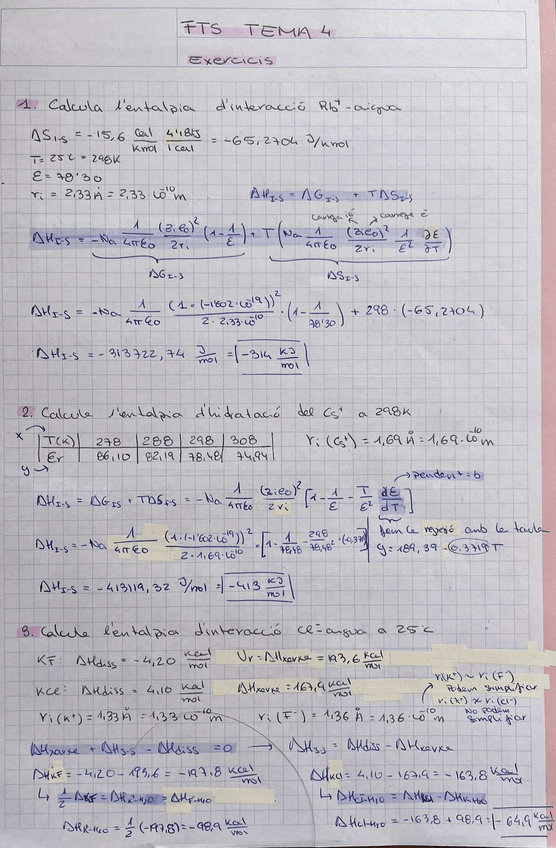 FTS TEMA 4
Exercicis
1. Calcula l'entalpia d'interacció Rb⁺-aigua
ΔS_I-S = -15,6 cal/kmol · 4'184J/1cal = -65,2704 J/kmol
T = 25ºC = 298K
ε = 78'30
ri = 2,33Å = 2,33·10⁻¹⁰m
ΔH_I-S = ΔG_I-S + TΔS_I-S
ΔH_I-S = -Na 1/4πε₀ (zie₀)²/2ri (1 - 1/ε) + T (Na 1/4πε₀ (zie₀)²/2ri 1/ε² ∂ε/∂T)
ΔG_I-S ΔS_I-S
ΔH_I-S = -Na 1/4πε₀ (1·(-1'602·10⁻¹⁹))²/2·2,33·10⁻¹⁰ · (1 - 1/78'30) + 298·(-65,2704)
ΔH_I-S = -313722,74 J/mol = -314 kJ/mol
2. Calcula l'entalpia d'hidratació del Cs⁺ a 298K
x
T(K) 278 288 298 308
εr 86,10 82,19 78,48 74,94
y
ri (Cs⁺) = 1,69Å = 1,69·10⁻¹⁰m
pendent = b
ΔH_I-S = ΔG_I-S + TΔS_I-S = -Na 1/4πε₀ (zie₀)²/2ri [1 - 1/ε - T/ε² dε/dT]
fem la regressió amb la taula
ΔH_I-S = -Na 1/4πε₀ (1·(-1'602·10⁻¹⁹))²/2·1,69·10⁻¹⁰ · [1 - 1/78,48 - 298/78,48² ·(-0,3719)]
y = 189,39 - 0,3719 T
ΔH_I-S = -413119,32 J/mol = -413 kJ/mol
3. Calcula l'entalpia d'interacció Cl⁻-aigua a 25ºC
KF: ΔHdiss = -4,20 kcal/mol Ur = ΔHxarxa = 193,6 kcal/mol
KCl: ΔHdiss = 4,10 kcal/mol ΔHxarxa = 167,9 kcal/mol
r(K⁺) ~ ri(F⁻)
Podem simplificar
ri(K⁺) ≁ ri(Cl⁻)
No podem simplificar
ri(K⁺) = 1,33Å = 1,33·10⁻¹⁰m ri(F⁻) = 1,36Å = 1,36·10⁻¹⁰m
ΔHxarxa + ΔH_I-S - ΔHdiss = 0 → ΔH_I-S = ΔHdiss - ΔHxarxa
ΔHKF = -4,20 - 193,6 = -197,8 kcal/mol ΔHKCl = 4,10 - 167,9 = -163,8 kcal/mol
↳ 1/2 ΔKF = ΔH_K⁺-H₂O = ΔH_F-H₂O ↳ ΔH_Cl-H₂O = ΔHKCl - ΔH_K-H₂O
ΔH_K-H₂O = 1/2 (-197,8) = -98,9 kcal/mol ΔH_Cl-H₂O = -163,8 + 98,9 = -64,9 kcal/mol